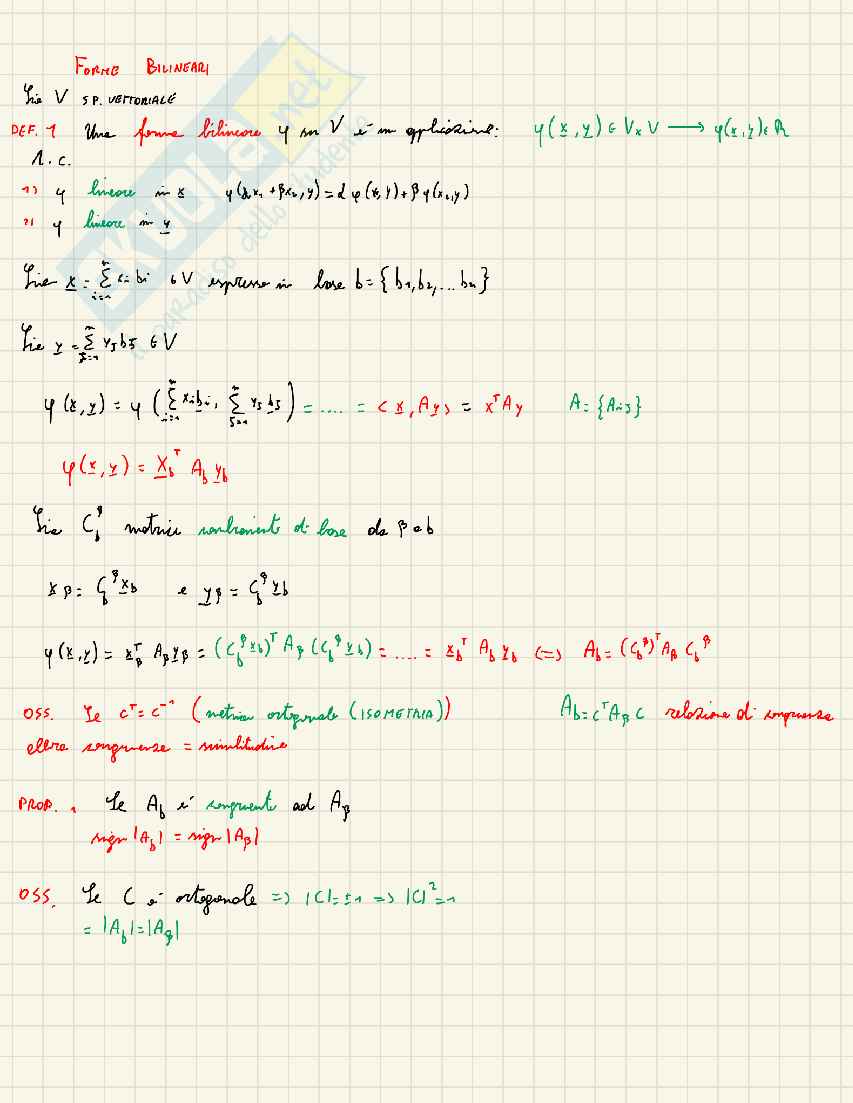 FORME BILINEARI
Sia V SP. VETTORIALE
DEF. 1 Una forma bilineare φ su V è un'applicazione: φ(x, y) ∈ V x V ⟶ φ(x, y) ∈ R
t.c.
1) φ lineare in x φ(αx₁ + βx₂, y) = αφ(x, y) + βφ(x₂, y)
2) φ lineare in y
Sia x = Σⁿᵢ₌₁ xᵢ bᵢ ∈ V espresso in base b = {b₁, b₂, ... bₙ}
Sia y = Σⁿⱼ₌₁ yⱼ bⱼ ∈ V
φ(x, y) = φ(Σⁿᵢ₌₁ xᵢ bᵢ, Σⁿⱼ₌₁ yⱼ bⱼ) = .... = < x, Ay > = xᵀAy A = {Aᵢⱼ}
φ(x, y) = X_bᵀ A_b y_b
Sia C_b^β matrice cambiamento di base da β a b
x_β = C_b^β x_b e y_β = C_b^β y_b
φ(x, y) = x_βᵀ A_β y_β = (C_b^β x_b)ᵀ A_β (C_b^β y_b) = .... = x_bᵀ A_b y_b <=> A_b = (C_b^β)ᵀ A_β C_b^β
OSS. Se Cᵀ = C⁻¹ (matrice ortogonale (ISOMETRIA)) A_b = Cᵀ A_β C relazione di congruenza
allora congruenza = similitudine
PROP. 1 Se A_b è congruente ad A_β
sign |A_b| = sign |A_β|
OSS. Se C è ortogonale => |C| = ±1 => |C|² = 1
= |A_b| = |A_β|
SKUOLA.net
il paradiso dello studente